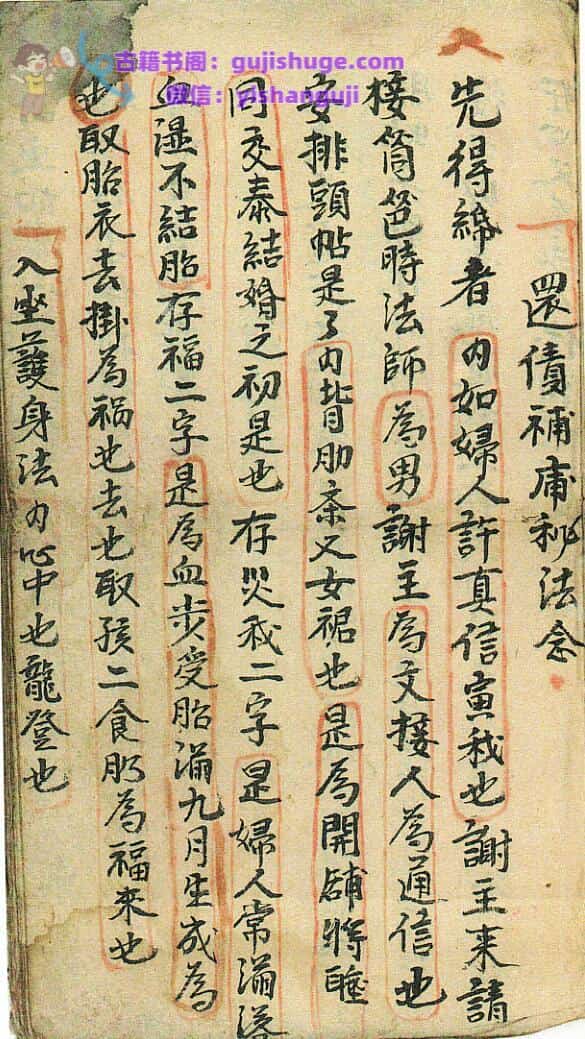 古籍书阁：gujishuge.com
微信：yishanguji
還債補庙秘法念
先得綿者内如婦人許真信寅我也謝主来請
接筒筶時法師為男謝主為文接人為通信也
安排頭帖是了内背肋条又女裙也是為開鋪將睡
同交泰結婚之初是也存災我二字是婦人常漏落
血湿不結胎存福二字是為血步受胎滿九月生成為
也取胎衣去掛為禍也去也取孩二食肭為福来也
入坐護身法内心中也龍登也